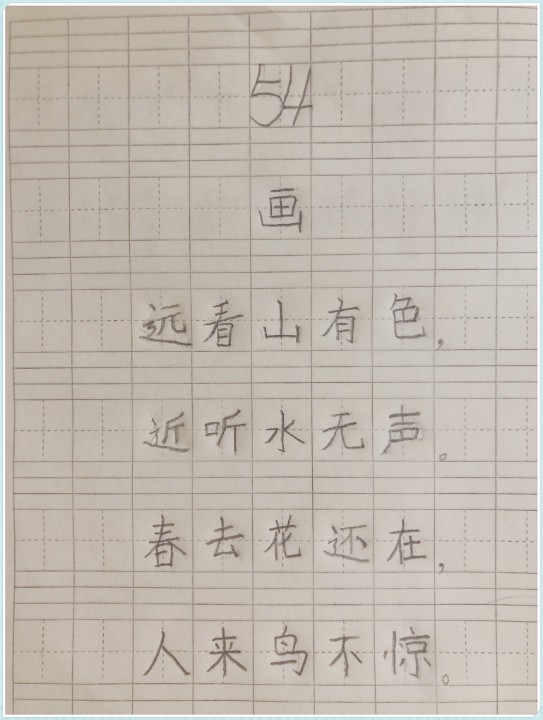 54
画
远看山有色，
近听水无声。
春去花还在，
人来鸟不惊。